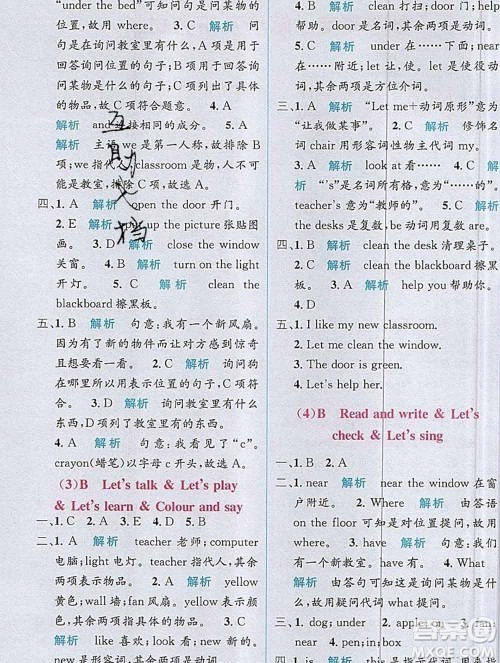 "under the bed"可知问句是问某物的
位置，故选 B。 3. C 解析 问
句是在询问教室里有什么，A 项是用于
回答询问方位的句子，B 项是用于回答
询问某物是什么的句子，C 项给出了具体
的物品，故 C 项符合题意。 4. A
解析 and 连接相同的成分。 5. A
解析 主语 we 是第一人称，故排除 B
项；we 指代人，classroom 是物，不可能
是教室，排除 C 项，故选 A。
四、1. A 解析 open the door 开门。
2. E 解析 put up the picture 张贴图
画。 3. D 4. B 解析 close the window
关窗。 5. C 解析 turn on the light
开灯。 6. C 解析 clean the
blackboard 擦黑板。
五、1. B 解析 句意：我有一个新风扇。
因为有了新的物件而让对方感到惊奇
或共同欣赏。 2. C 解析 询问狗
在哪里，所以用表示方位的句子，A 项
正确。 3. C 解析 询问教室里有什
么东西，C 项列举了教室里有的东西。
4. A 解析 句意：我看了看"c"。
crayon(蜡笔)以字母 c 开头，故选 A。
(3)B Let's talk & Let's play
& Let's learn & Colour and say
一、1. C 2. A 3. A 4. B 5. C
二、1. A 解析 teacher 老师；computer
电脑；light 电灯。teacher 指代人，其
余两项表示物品。 2. C 解析 yellow
黄色；wall 墙；fan 风扇。yellow 表示颜
色，其余两项表示物品。 3. B
解析 like 喜欢；look 看；new 新的。
new 是形容词，其余两项是动词。
4. C 解析 clean 打扫；door 门；
open 打开。door 是名词，其余两项是动
词。 5. B 解析 under 在……下
面；near 在……附近；let 使，让。let 是动
词，其余两项是方位介词。
三、1. C 解析 "Let me+动词原形"意为
"让我做某事"。 2. C 解析 修饰名
词 chair 用形容词性物主代词 my。
3. A 解析 look at 看……。 4. B
解析 "'s"是名词所有格，意为"……的"。
teacher's 意为"教师的"。 5. C 解析
the desks 是复数，be 动词用复数 are。
四、1. B 解析 clean the desk 清理桌子。
2. C 解析 clean the blackboard
擦黑板。 3. A 解析 help you 帮助你。
4. D
五、1. I like my new classroom.
2. Let me clean the window.
3. The door is green.
4. Let's help her.
(4)B Read and write & Let's
check & Let's sing
一、1. B 2. A
二、1. near 解析 near the window 在窗
户附近。 2. Where 解析 由答语
on the floor 可知是对位置提问，故用
where。 3. have 解析 句意：我们有
一个新教室，故填 have。 4. What
解析 由答句可知这是询问某物是什
么，故用疑问代词 what。
三、1. dog; under 2. apple; on 3. cat;
near 4. pen; in; box
四、1. is 解析 this 指代单数，其
互助文档
答案圈
MXQE.COM